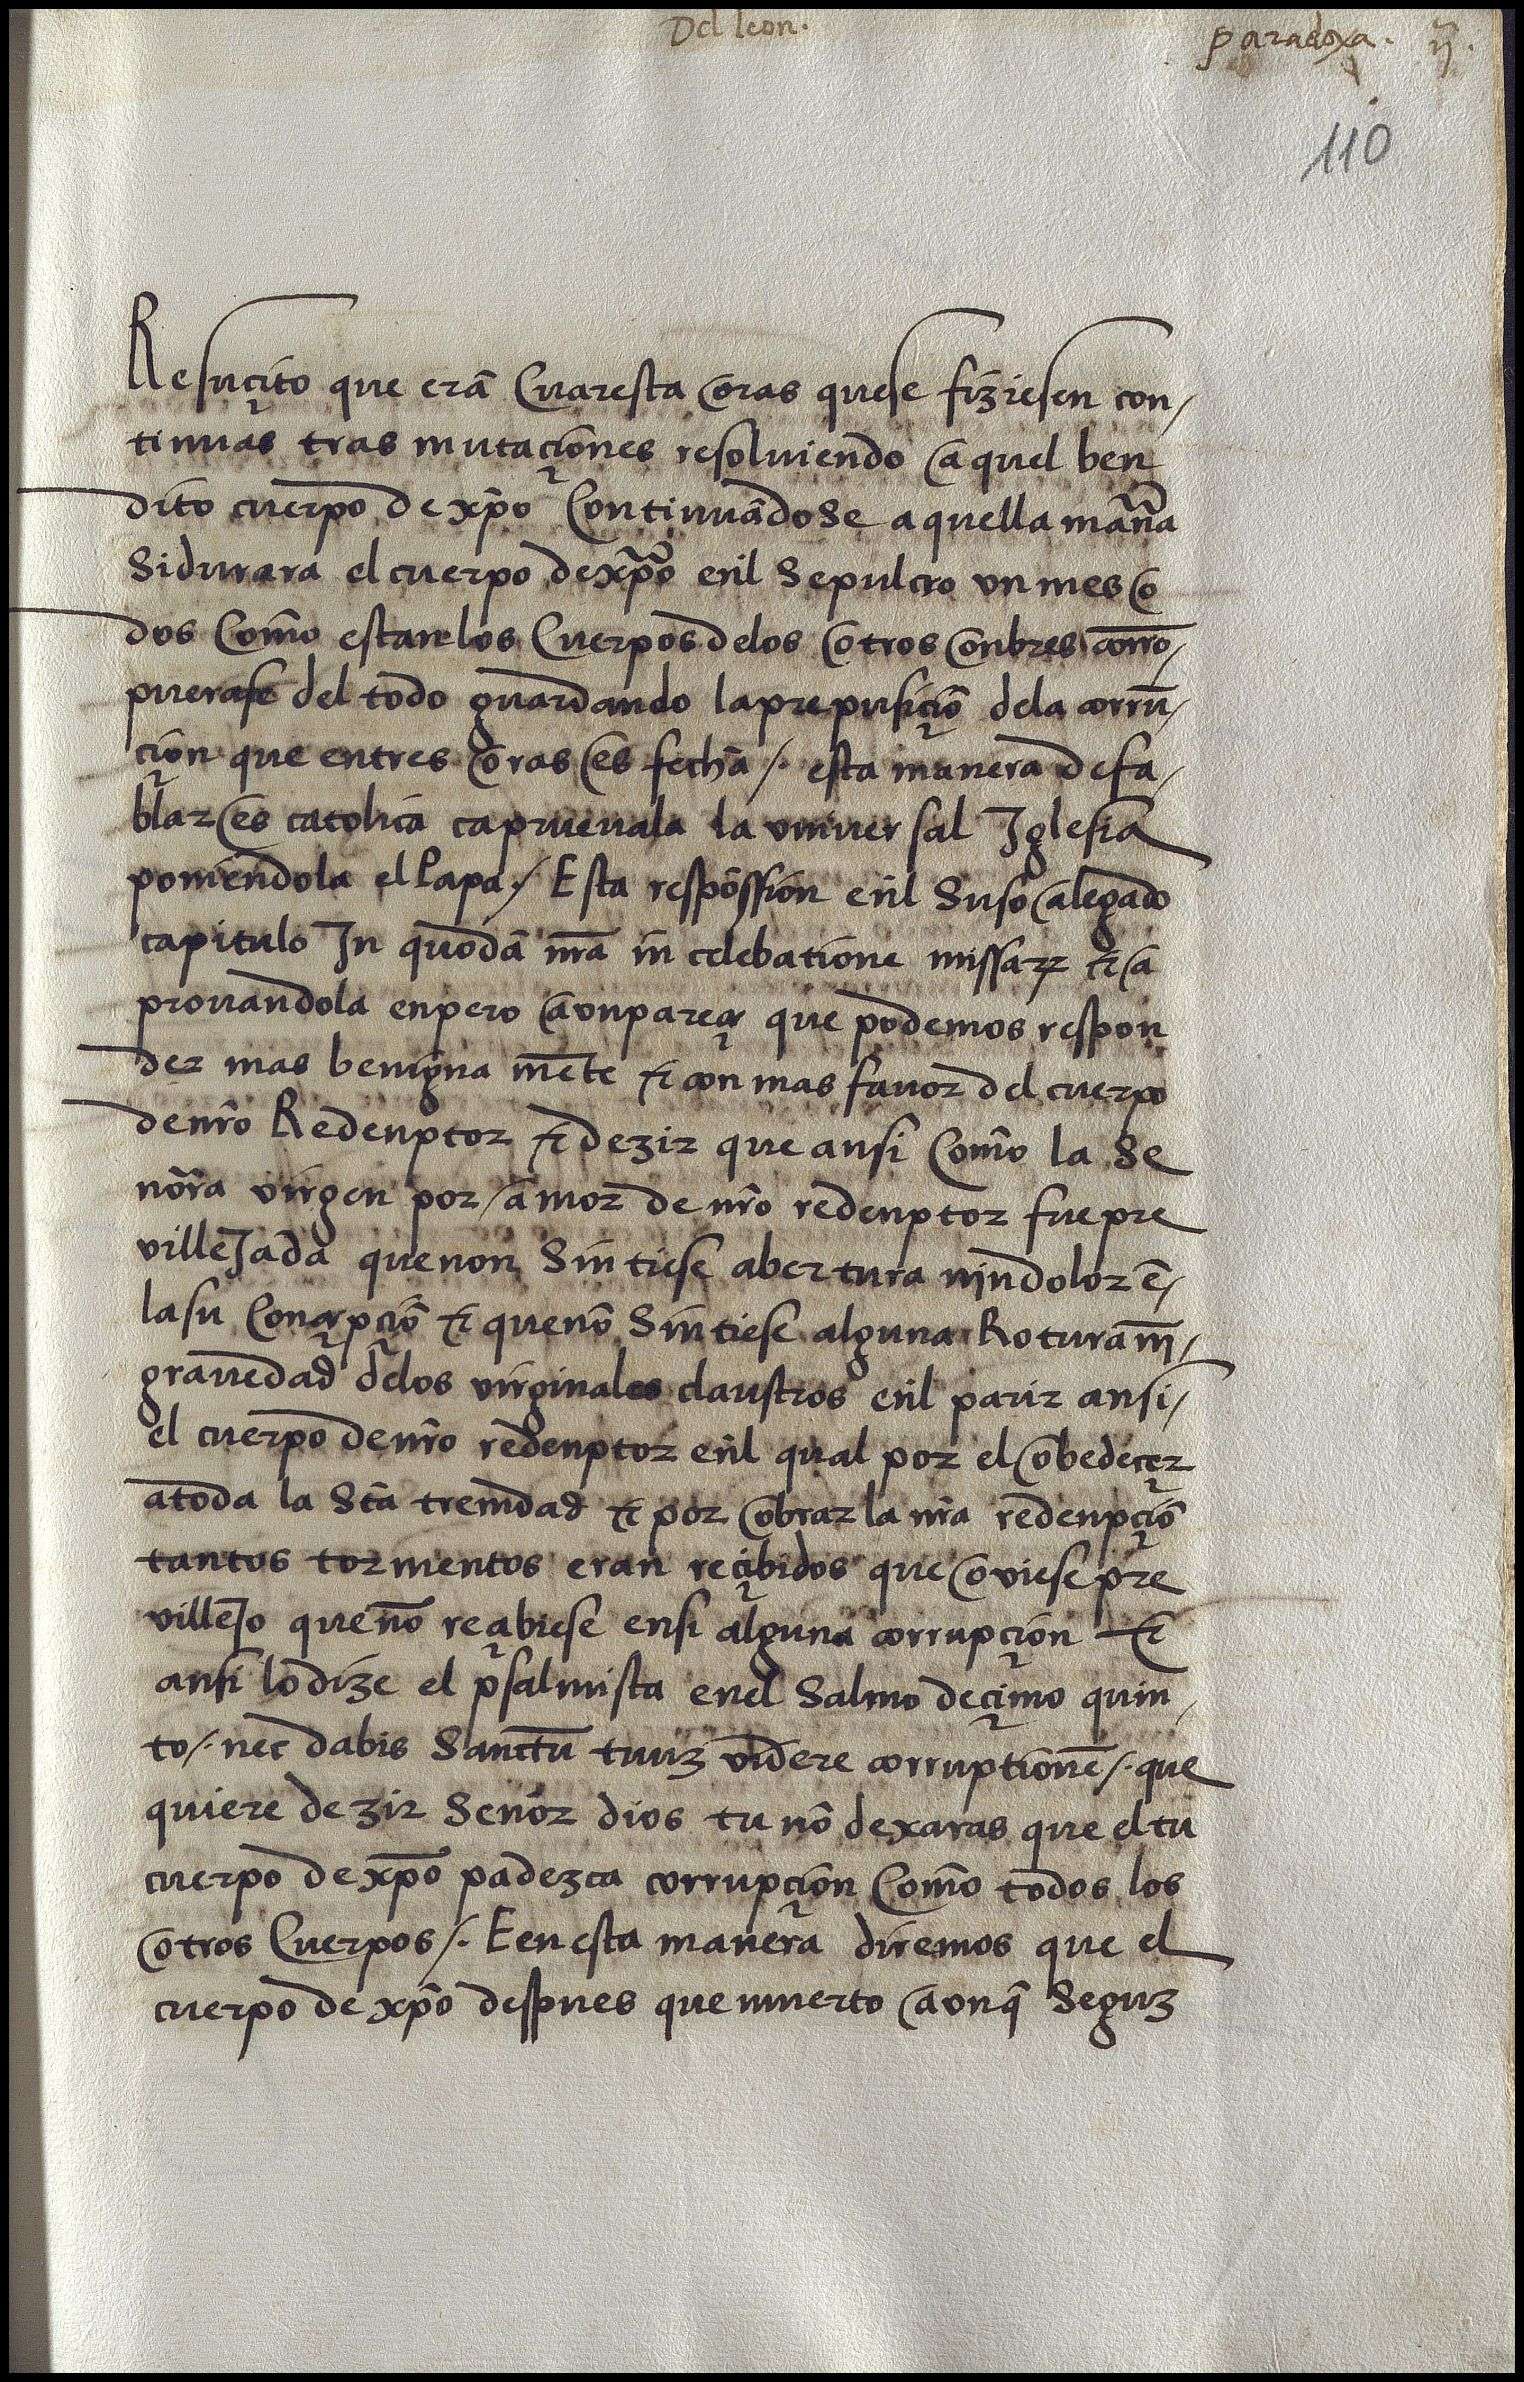 Del leon.
paradoxa. ij.
110
Resuçito que erã Cuaresta oras quese fiziesen con/
tinuas tras mutaçiones resoluiendo a quel ben
dito cuerpo de xp̃o Continuãdose a quella mañã
Sidurara el cuerpo dexp̃o eñl Sepulcro vn mes o
dos Com̃o estan los Cuerpos delos otros onbres corrõ/
puerase del todo guardando la prepusiçiõ dela corrũ/
çion que entres oras es fecha /. esta manera defa/
blar es catolica capruevala la vniuersal Iglesia
poniendola el Papa / Esta respõssion eñl Suso alegado
capitulo In quodã nr̃a in celebatione missaꝝ ⁊ a
prouandola enpero aonpareçer que podemos respon
der mas benigna mẽte ⁊ con mas fauor del cuerpo
denr̃o Redenptor ⁊ dezir que ansi Com̃o la Se
ñora virgen por amor de nr̃o redenptor fue pre
villeJada que non Sintiese abertura nin dolor ẽ/
lasu Conçepçiõ ⁊ quenõ Sintiese alguna Rotura nĩ/
grauedad delos virginales claustros eñl parir ansi/
el cuerpo denr̃o redenptor eñl qual por el obedeçer
atoda la Sta trenidad ⁊ por obrar la nr̃a redenpçiõ
tantos tormentos eran reçibidos que oviese pre
villeJo queno reçibiese ensi alguna corrupçion ⁊
ansi lo dize el psalmista enel Salmo deçimo quin/
to /. nec dabis Sanctũ tuuz videre corruptionẽ /. que
quiere dezir Señor dios tu nõ dexaras que el tu
cuerpo dexp̃o padezca corrupçion Com̃o todos los
otros Cuerpos /. E en esta manera diremos que el
cuerpo de xp̃o despues que muerto aonq̃ Seguz